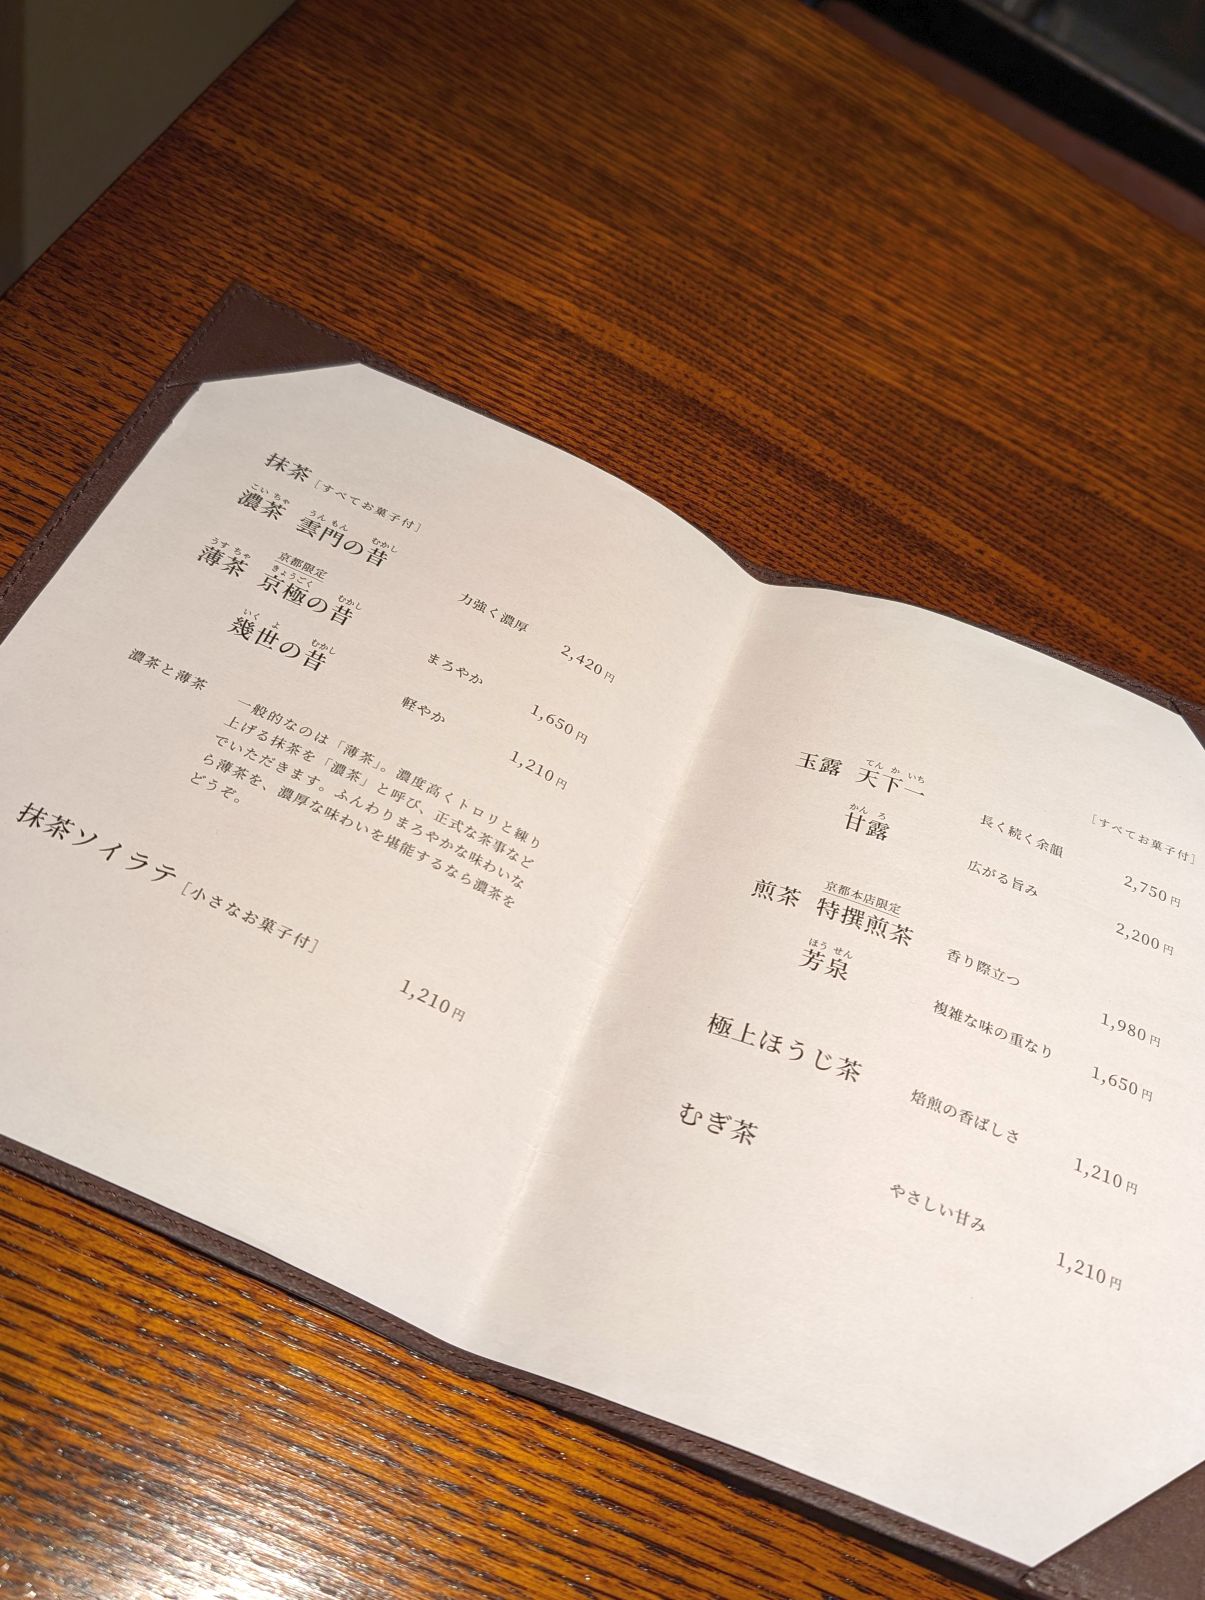 抹茶［すべてお菓子付］
こい ちゃ うん もん むかし
濃茶 雲門の昔 力強く濃厚 2,420円
京都限定
うす ちゃ きょうごく むかし
薄茶 京極の昔 まろやか 1,650円
いく よ むかし
幾世の昔 軽やか 1,210円
濃茶と薄茶
一般的なのは「薄茶」。濃度高くトロリと練り
上げる抹茶を「濃茶」と呼び、正式な茶事など
でいただきます。ふんわりまろやかな味わいな
ら薄茶を、濃厚な味わいを堪能するなら濃茶を
どうぞ。
抹茶ソイラテ［小さなお菓子付］ 1,210円
［すべてお菓子付］
てん か いち
玉露 天下一 長く続く余韻 2,750円
かん ろ
甘露 広がる旨み 2,200円
京都本店限定
煎茶 特撰煎茶 香り際立つ 1,980円
ほう せん
芳泉 複雑な味の重なり 1,650円
極上ほうじ茶 焙煎の香ばしさ 1,210円
むぎ茶 やさしい甘み 1,210円